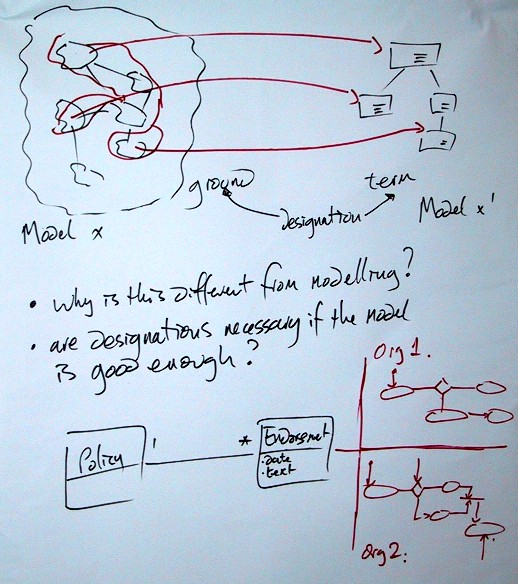 ground
term
Model x
designation
Model x'
• Why is this different from modelling?
• are designations necessary if the model
is good enough?
Org 1.
Policy
1
*
Endorsement
• Date
• text
Org 2.